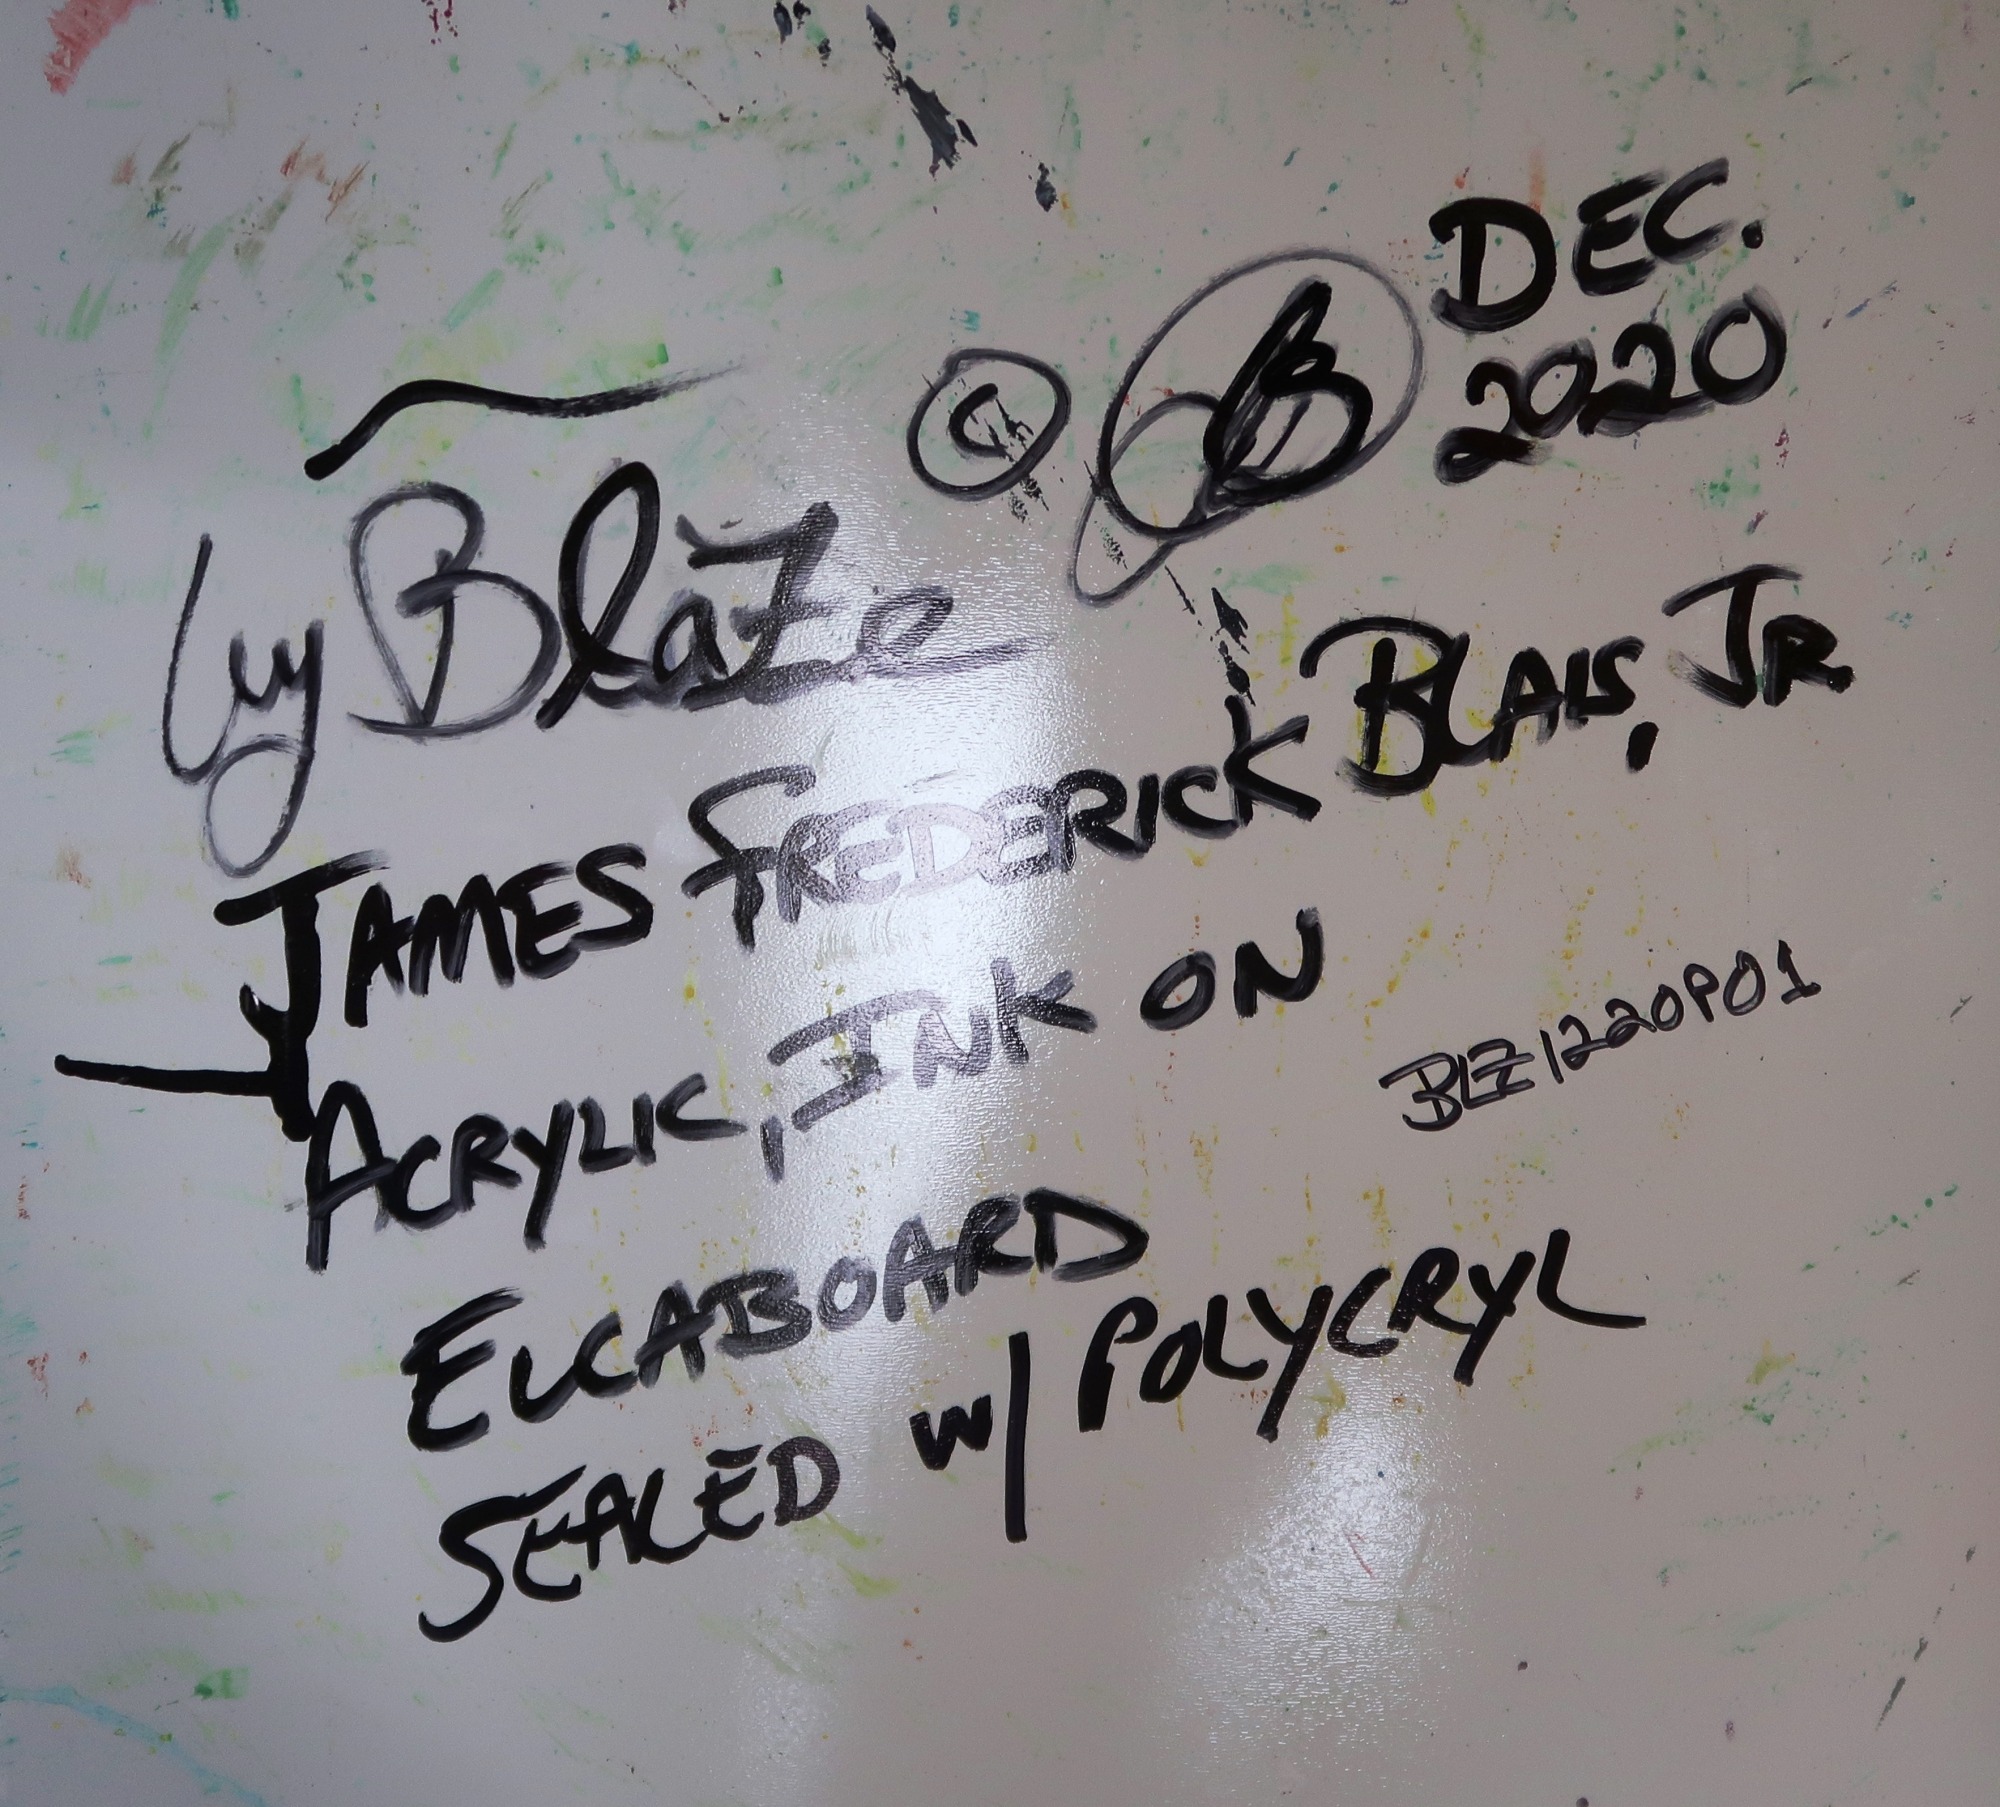 © B DEC.
2020
by BlaZe
JAMES FREDERICK BLAIS, JR
ACRYLIC, INK ON
BLZ1220P01
ELCABOARD
SEALED W/ POLYCRYL